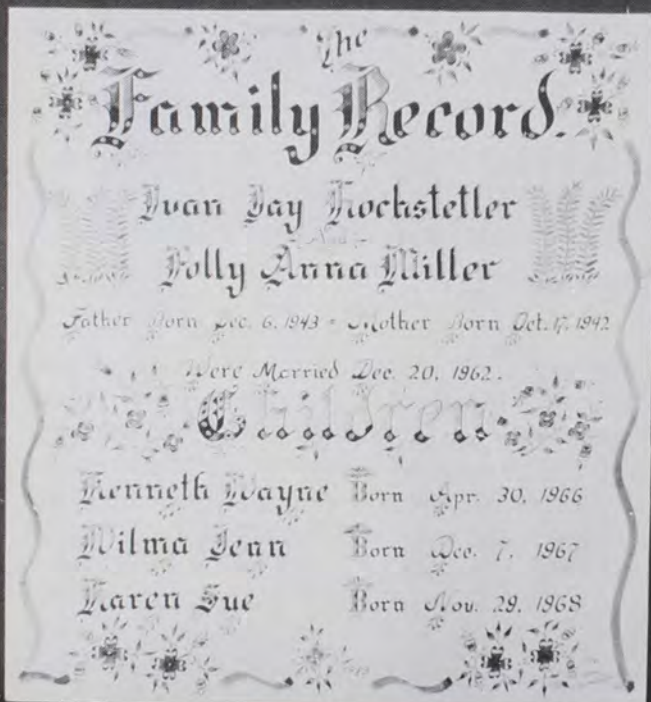 The
Family Record.
Ivan Jay Hochstetler
And
Polly Anna Miller
Father Born Dec. 6, 1943 - Mother Born Oct. 17, 1942
Were Married Dec. 20, 1962.
Children
Kenneth Wayne Born Apr. 30, 1966
Wilma Jean Born Dec. 7, 1967
Karen Sue Born Nov. 29, 1968